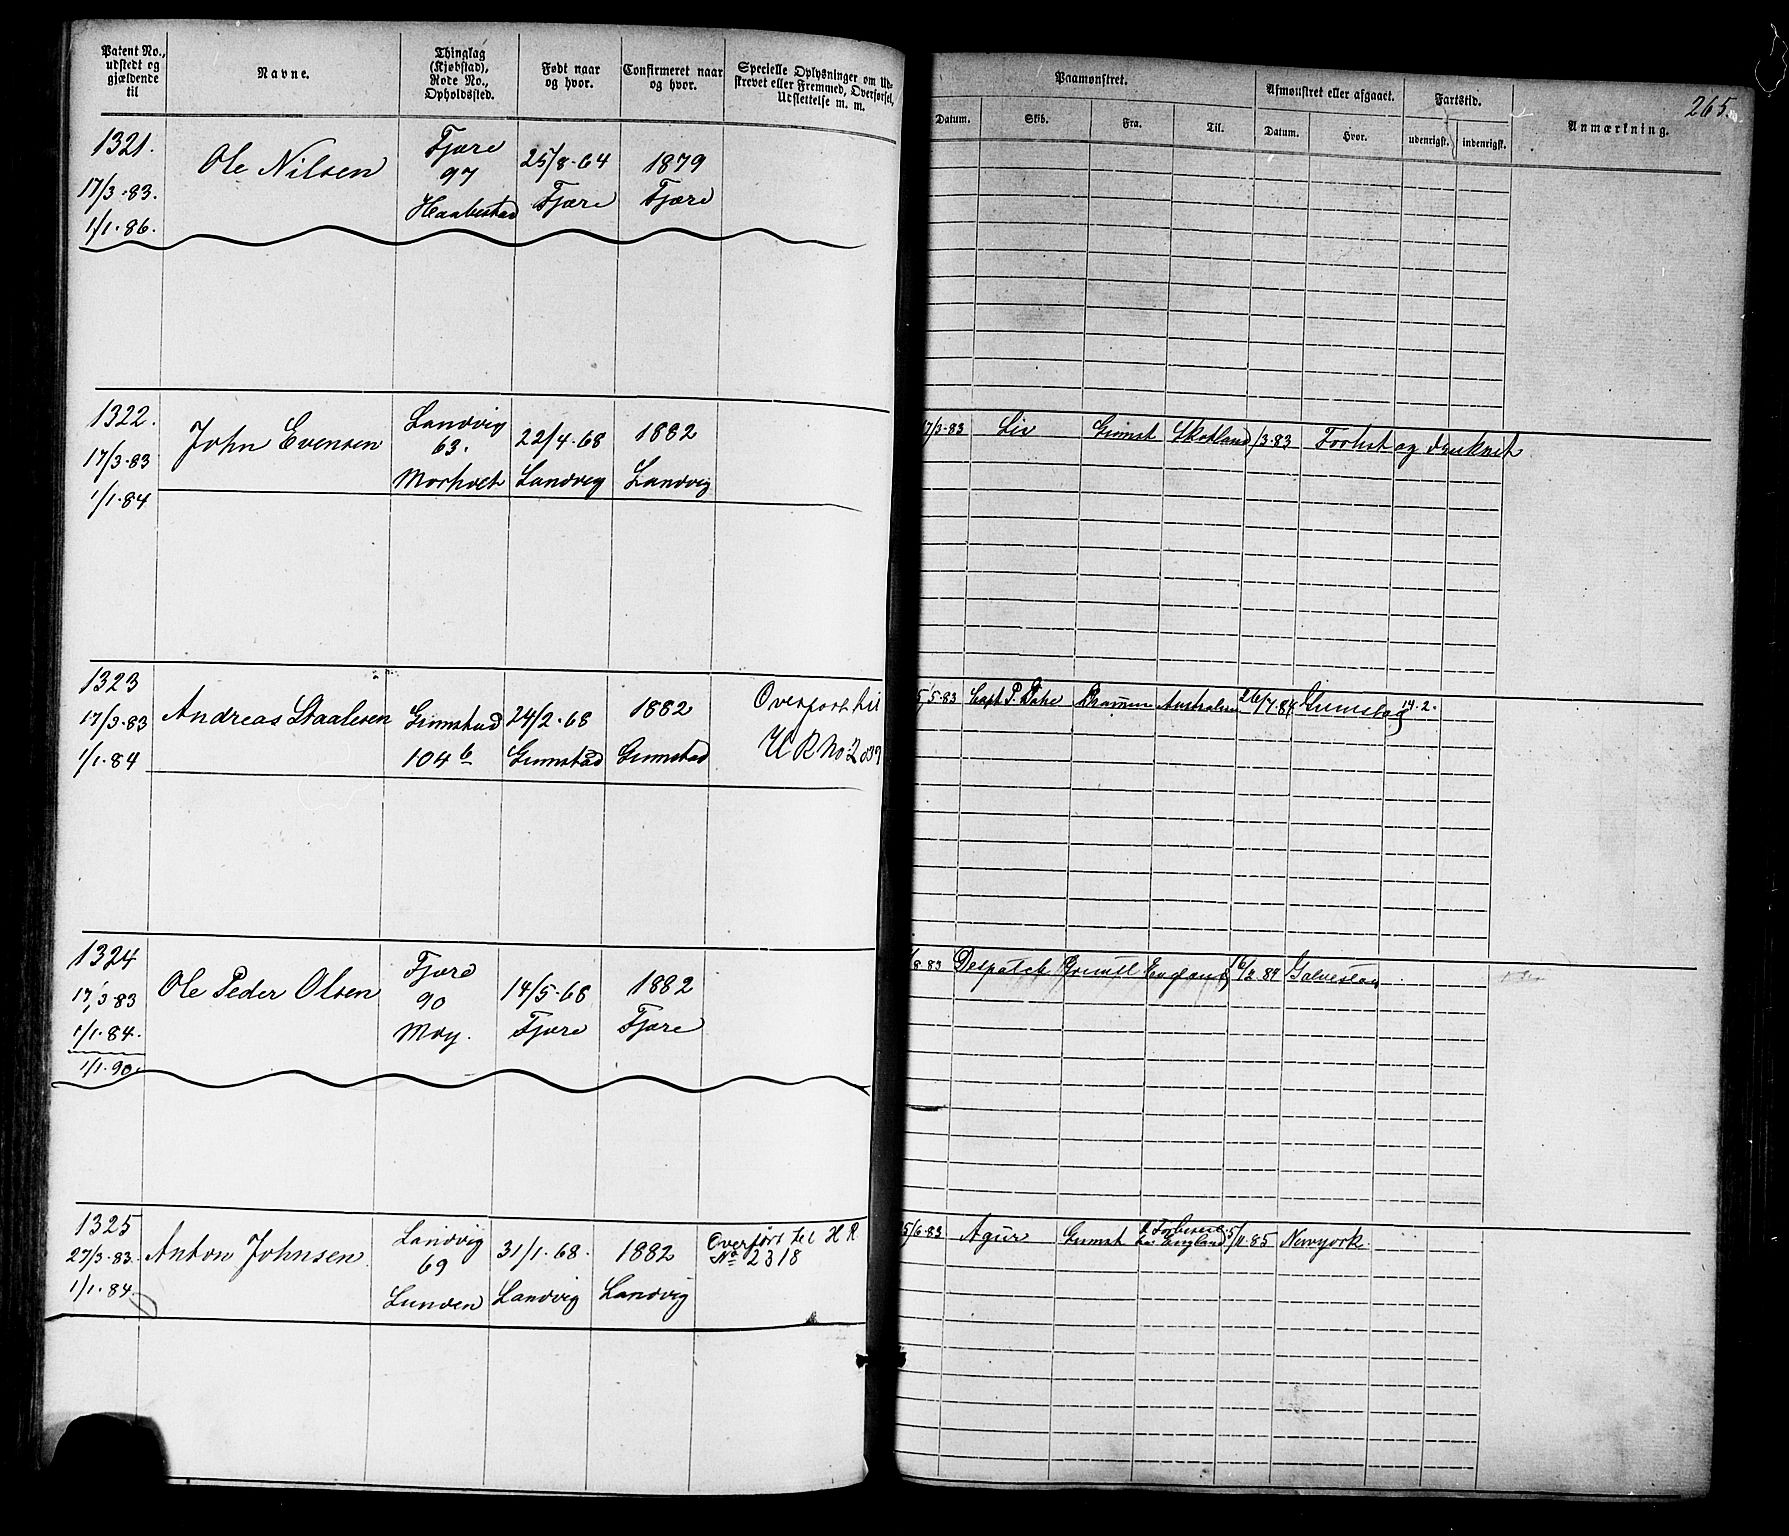 Patent No., udstedt og gjældende til
Navne.
Thinglag (Kjøbstad), Rode No., Opholdssted.
Født naar og hvor.
Confirmeret naar og hvor.
Specielle Oplysninger om Udskrevet eller Fremmed, Overførsel, Udslettelse m. m.
Paamønstret.
Afmønstret eller afgaaet.
Fartstid.
Anmærkning.
265.
Datum.
Skib.
Fra.
Til.
Datum.
Hvor.
udenrigst.
indenrigst.
1321.
17/3.83.
1/1.86.
Ole Nilsen
Fjære
97
Haabestad
25/8.64
Fjære
1879
Fjære
1322.
17/3.83
1/1.84
John Evensen
Landvig
63.
Morhvet
22/4.68
Landvig
1882
Landvig
17/3.83 Liv Grimst Skotland /3.83 Forlist og druknet
1323
17/3.83
1/1.84
Andreas Staalesen
Grimstad
104 b
24/2.68
Grimstad
1882
Grimstad
Overført til
H R No 2
5/5.83 Capt P. Australien 26/7.84 Grimstad 14.2.
1324
17/3.83
1/1.84.
1/1.90.
Ole Peder Olsen
Fjære
90
Moy.
14/5.68
Fjære
1882
Fjære
/8.83 Despatch Grimst England 16/2.84 Galveston
1325
27/3.83.
1/1.84.
Anton Johnsen
Landvig
69
Lunden
31/1.68.
Landvig
1882
Landvig
Overført til H R
No 2318
5/6.83 Agur Grimst England 5/11.85 Newyork